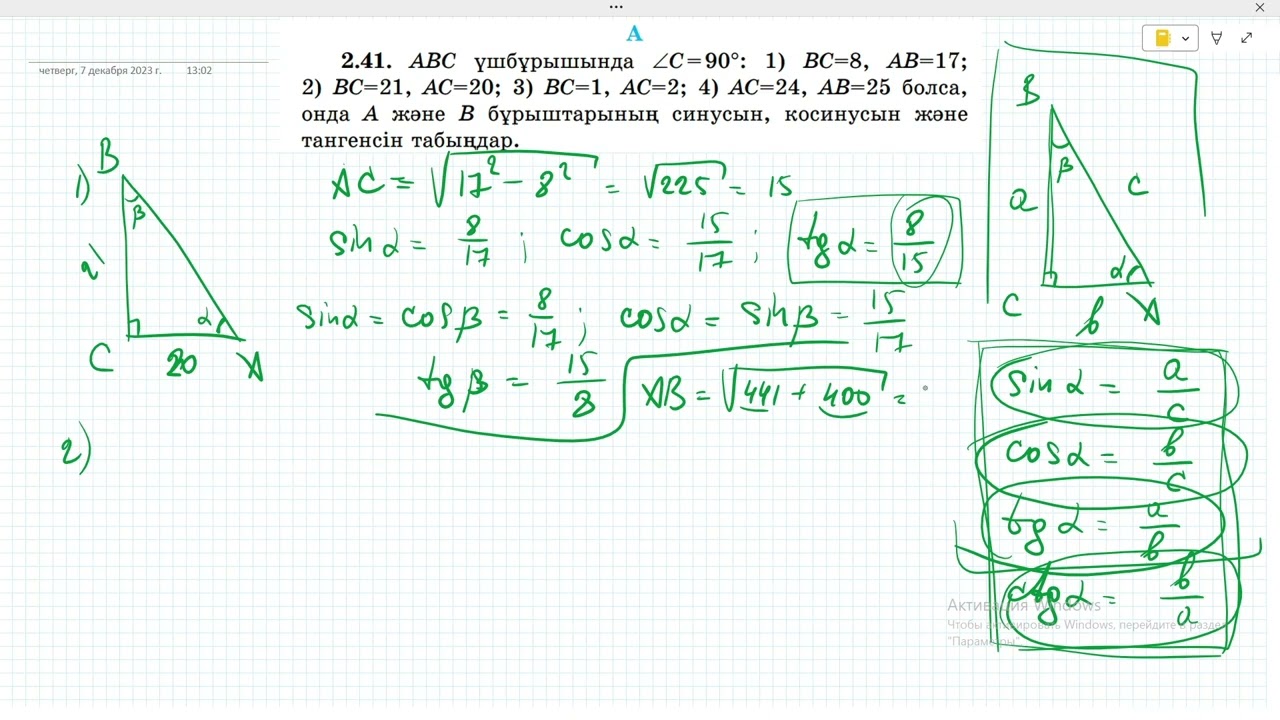 четверг, 7 декабря 2023 г. 13:02
А
2.41. ABC үшбұрышында ∠C=90°: 1) BC=8, AB=17;
2) BC=21, AC=20; 3) BC=1, AC=2; 4) AC=24, AB=25 болса,
онда A және B бұрыштарының синусын, косинусын және
тангенсін табыңдар.
1)
B
β
α
C
20
A
AC = √17² − 8² = √225 = 15
sin α = 8/17 ; cos α = 15/17 ; tg α = 8/15
sin α = cos β = 8/17 ; cos α = sin β = 15/17
tg β = 15/8
AB = √441 + 400 =
2)
B
β
a
c
α
C
b
A
sin α = a/c
cos α = b/c
tg α = a/b
ctg α = b/a
Активация Windows
Чтобы активировать Windows, перейдите в раздел
"Параметры"